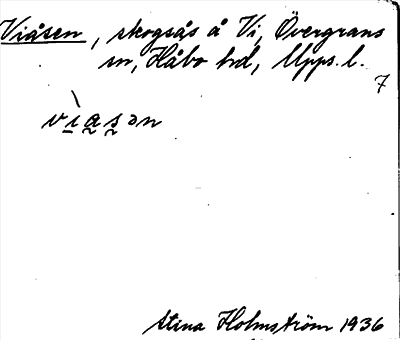 Viåsen, skogsås å Vi, Övergrans
sn, Håbo hd, Upps. l.
7
vìa̰s̰ən
Stina Holmström 1936